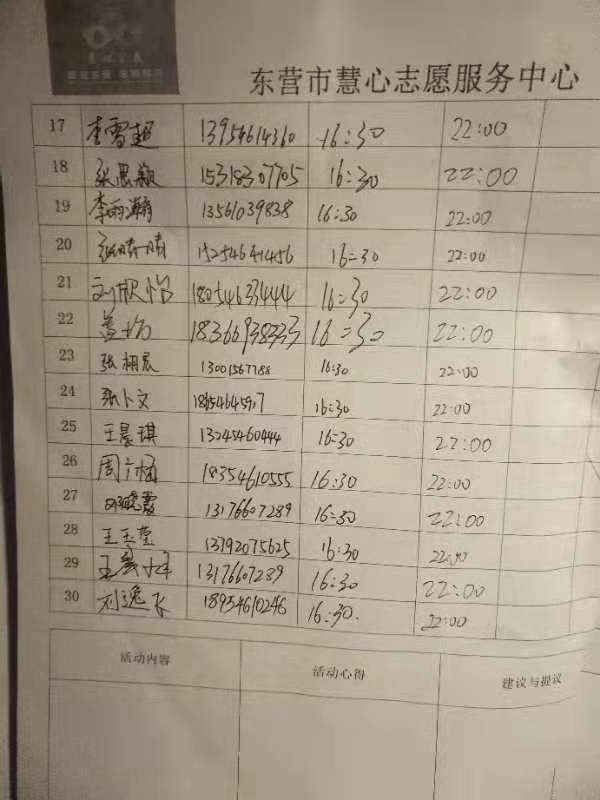 东营市慧心志愿服务中心
17 李雪超 13954614360 16:30 22:00
18 张思颖 15318307705 16:30 22:00
19 李雨瀚 13561039838 16:30 22:00
20 张晴晴 15254641456 16:30 22:00
21 刘欣怡 18054633444 16:30 22:00
22 16:30 22:00
23 张栩宸 13001567788 16:30 22:00
24 张卜文 16:30 22:00
25 王昱琪 13245460444 16:30 22:00
26 周 18354610555 16:30 22:00
27 邓晓霞 13176607289 16:30 22:00
28 王玉莹 13792075625 16:30 22:00
29 王 13176607289 16:30 22:00
30 刘逸飞 18954610246 16:30. 22:00
活动内容 活动心得 建议与提议